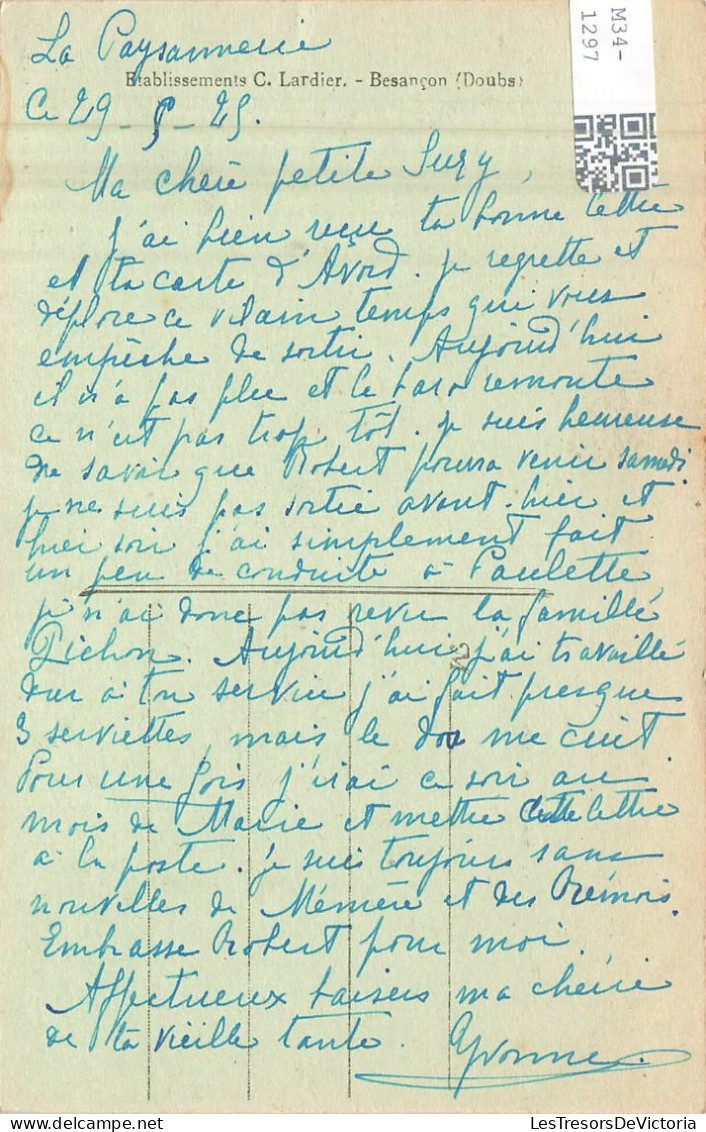 M34-
1297
La Paysannerie
Etablissements C. Lardier. - Besançon (Doubs)
Ce 29 - 5 - 25.
Ma chère petite Suzy,
J'ai bien reçu ta bonne lettre
et ta carte d'Avord. je regrette et
déplore ce vilain temps qui vous
empêche de sortir. Aujourd'hui
il n'a pas plu et le baro remonte
ce n'est pas trop tôt. je suis heureuse
de savoir que Robert pourra venir samedi
je ne suis pas sortie avant-hier et
hier soir j'ai simplement fait
un peu de conduite à Paulette,
je n'ai donc pas revu la famille
Pichon. Aujourd'hui j'ai travaillé
dur à ton service j'ai fait presque
3 serviettes, mais le dos me cuit
Pour une fois j'irai ce soir au
mois de Marie et mettre cette lettre
à la poste. je suis toujours sans
nouvelles de Mémère et des Rémois.
Embrasse Robert pour moi.
Affectueux baisers ma chérie
de ta vieille tante. Yvonne.
LesTresorsDeVictoria